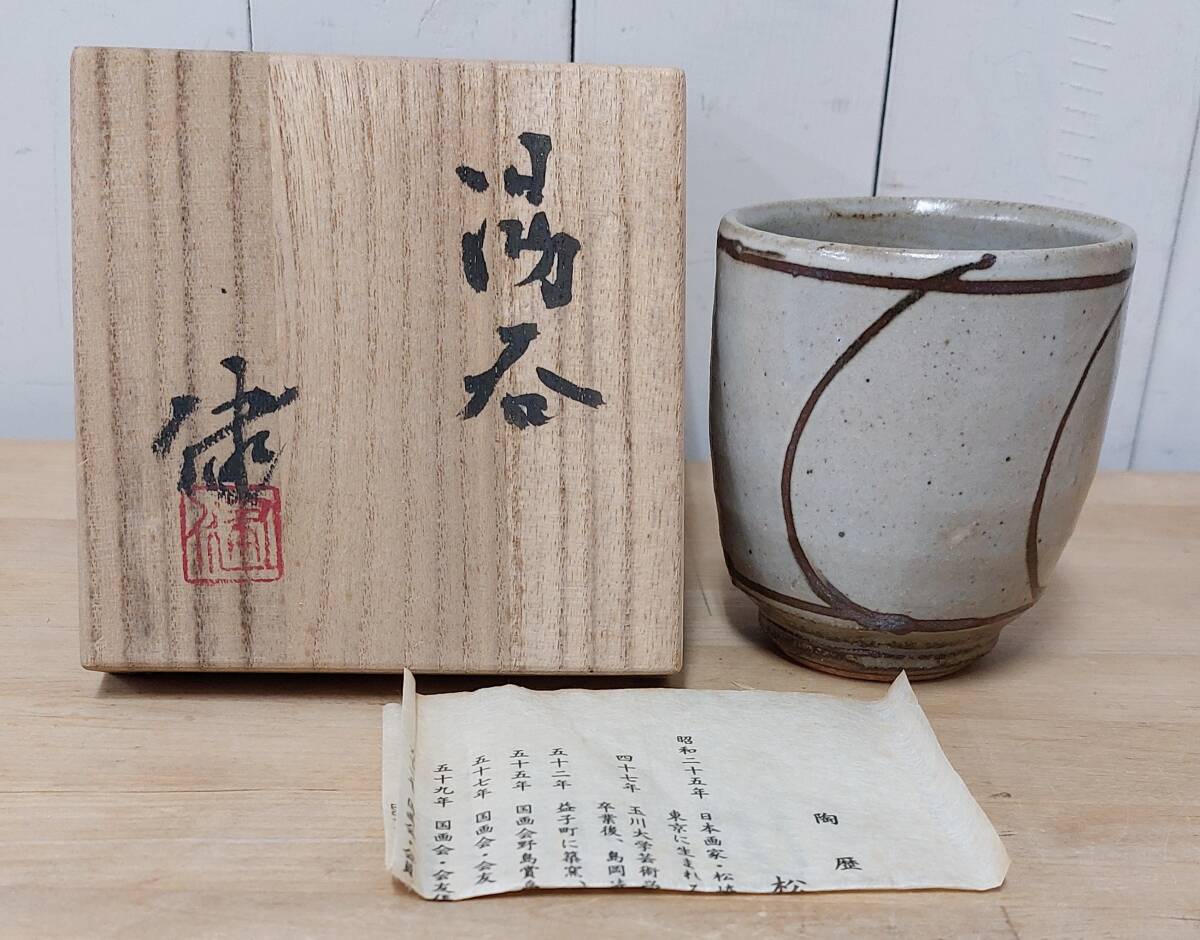 湯呑
健
健
陶歴
松
昭和二十五年 日本画家・松
東京に生まれる
四十七年 玉川大学芸術学
卒業後、島岡
五十二年 益子町に築窯、
五十五年 国画会野島賞
五十七年 国画会・会友
五十九年 国画会・会友